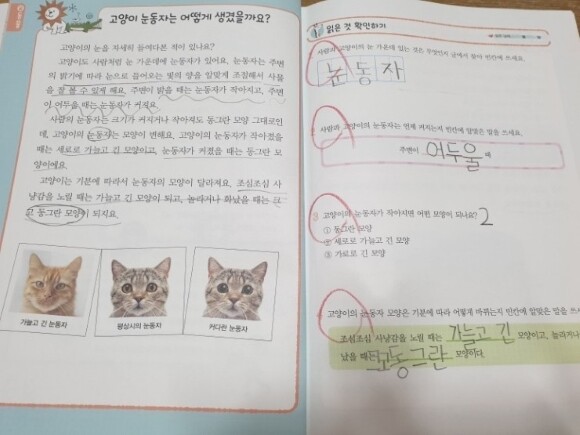 고양이 눈동자는 어떻게 생겼을까요?
고양이의 눈을 자세히 들여다본 적이 있나요?
고양이도 사람처럼 눈 가운데에 눈동자가 있어요. 눈동자는 주변
의 밝기에 따라 눈으로 들어오는 빛의 양을 알맞게 조절해서 사물
을 잘 볼 수 있게 해요. 주변이 밝을 때는 눈동자가 작아지고, 주변
이 어두울 때는 눈동자가 커지지요.
사람의 눈동자는 크기가 커지거나 작아져도 동그란 모양 그대로인
데, 고양이의 눈동자는 모양이 변해요. 고양이의 눈동자가 작아졌을
때는 세로로 가늘고 긴 모양이고, 눈동자가 커졌을 때는 동그란 모
양이에요.
고양이는 기분에 따라서 눈동자의 모양이 달라져요. 조심조심 사
냥감을 노릴 때는 가늘고 긴 모양이 되고, 놀라거나 화났을 때는 크
고 동그란 모양이 되지요.
가늘고 긴 눈동자
평상시의 눈동자
커다란 눈동자
읽은 것 확인하기
사람과 고양이의 눈 가운데 있는 것은 무엇인지 글에서 찾아 빈칸에 쓰세요.
눈 동 자
2 사람과 고양이의 눈동자는 언제 커지는지 빈칸에 알맞은 말을 쓰세요.
주변이 어두울 때
3 고양이의 눈동자가 작아지면 어떤 모양이 되나요? 2
① 동그란 모양
② 세로로 가늘고 긴 모양
③ 가로로 긴 모양
고양이의 눈동자 모양은 기분에 따라 어떻게 바뀌는지 빈칸에 알맞은 말을 쓰세
조심조심 사냥감을 노릴 때는 가늘고 긴 모양이고, 놀라거나
났을 때는 동그란 모양이다.